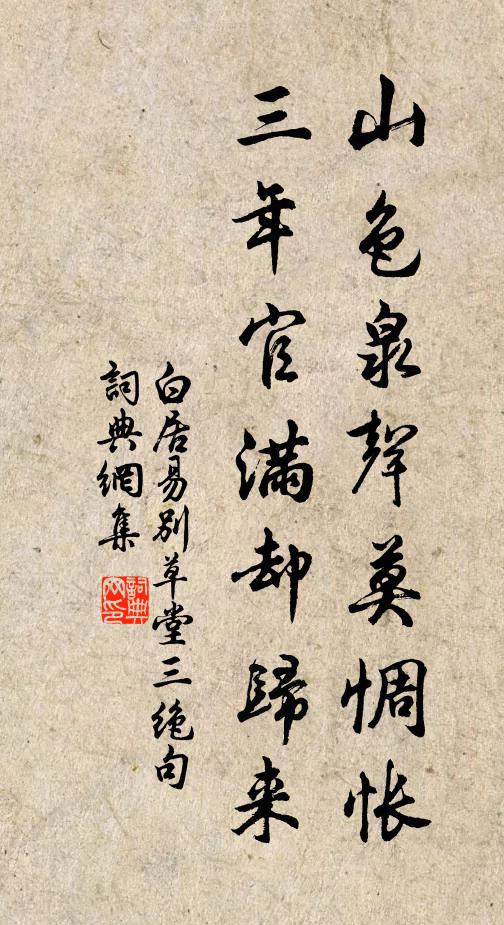 山色泉聲莫惆怅
三年官滿却歸来
白居易別草堂三绝句
詞典網集
詞典
网印